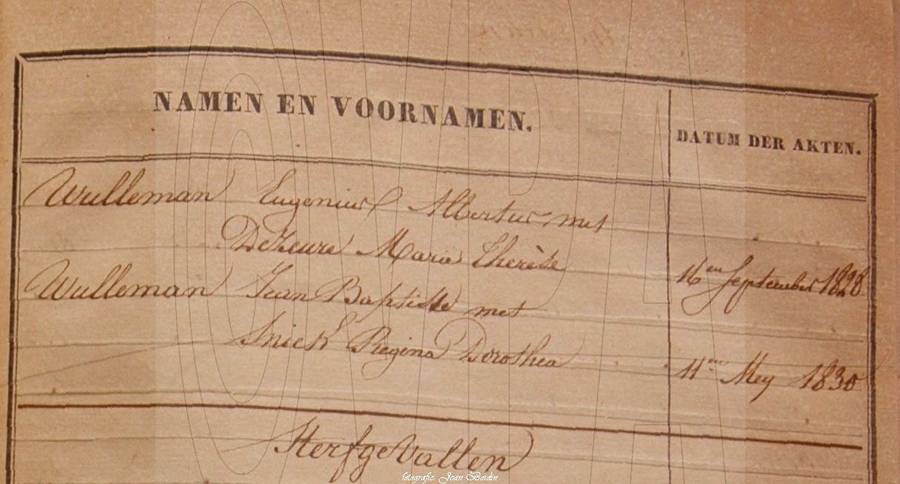 NAMEN EN VOORNAMEN.
DATUM DER AKTEN.
Wulleman Eugenius Albertus met
DeKeure Marie Therèse
16en September 1828
Wulleman Jean Baptiste met
Snick Regina Dorothea
11en Mey 1830
SterfgeVallen
fotografie Jean